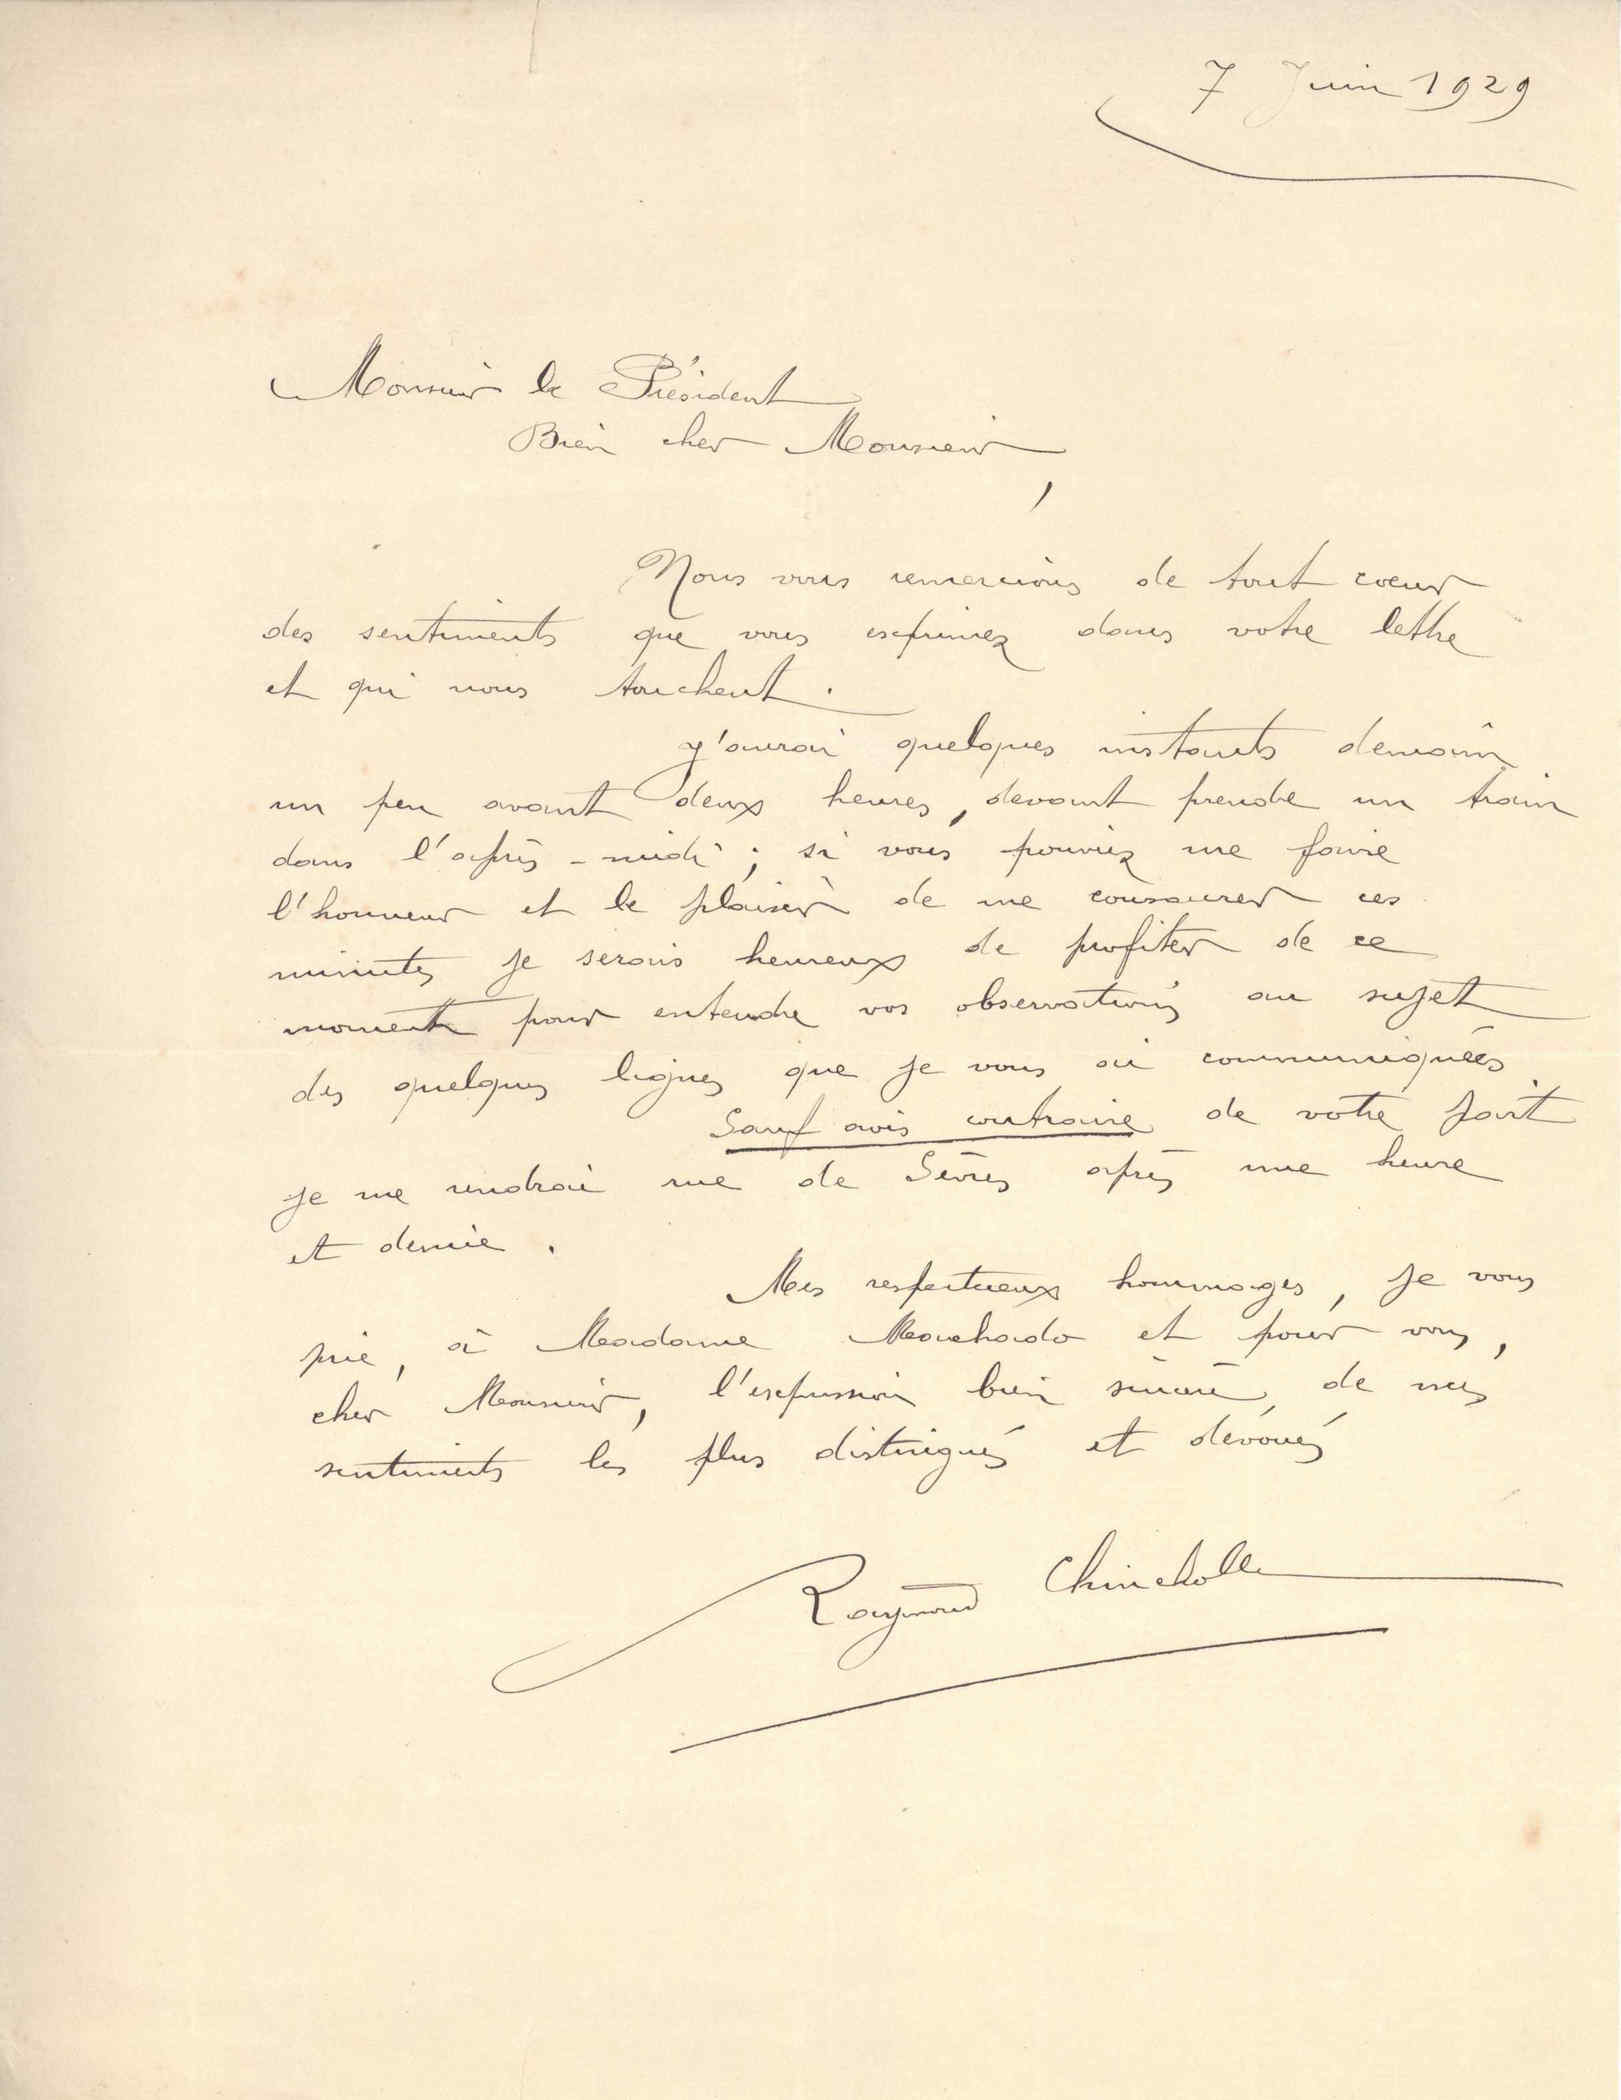 7 Juin 1929
Monsieur le Président
Bien cher Monsieur
,
Nous vous remercions de tout coeur
des sentiments que vous exprimez dans votre lettre
et qui nous touchent.
J'aurai quelques instants demain
un peu avant deux heures, devant prendre un train
dans l'après-midi ; si vous pouviez me faire
l'honneur et le plaisir de me consacrer ces
minutes je serais heureux de profiter de ce
moment pour entendre vos observations au sujet
des quelques lignes que je vous ai communiquées
Sauf avis contraire de votre part
je me rendrai rue de Sèvres après une heure
et demie.
Mes respectueux hommages, je vous
prie, à Madame Machado et pour vous,
cher Monsieur, l'expression bien sincère, de mes
sentiments les plus distingués et dévoués
Raymond Chincholle